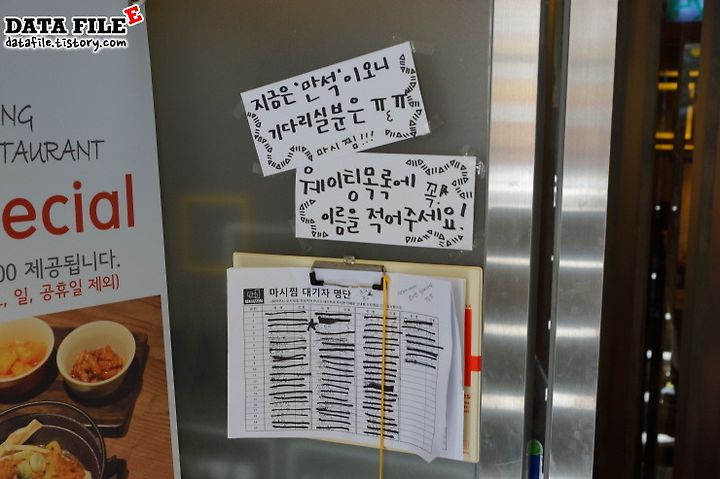 DATA FILE
datafile.tistory.com
NG
TAURANT
ecial
00 제공됩니다.
일, 공휴일 제외)
지금은 '만석' 이오니
기다리실분은 ㅠㅠ
마시찜!!!
웨이팅목록에 꼭!
이름을 적어주세요!
마시찜 대기자 명단